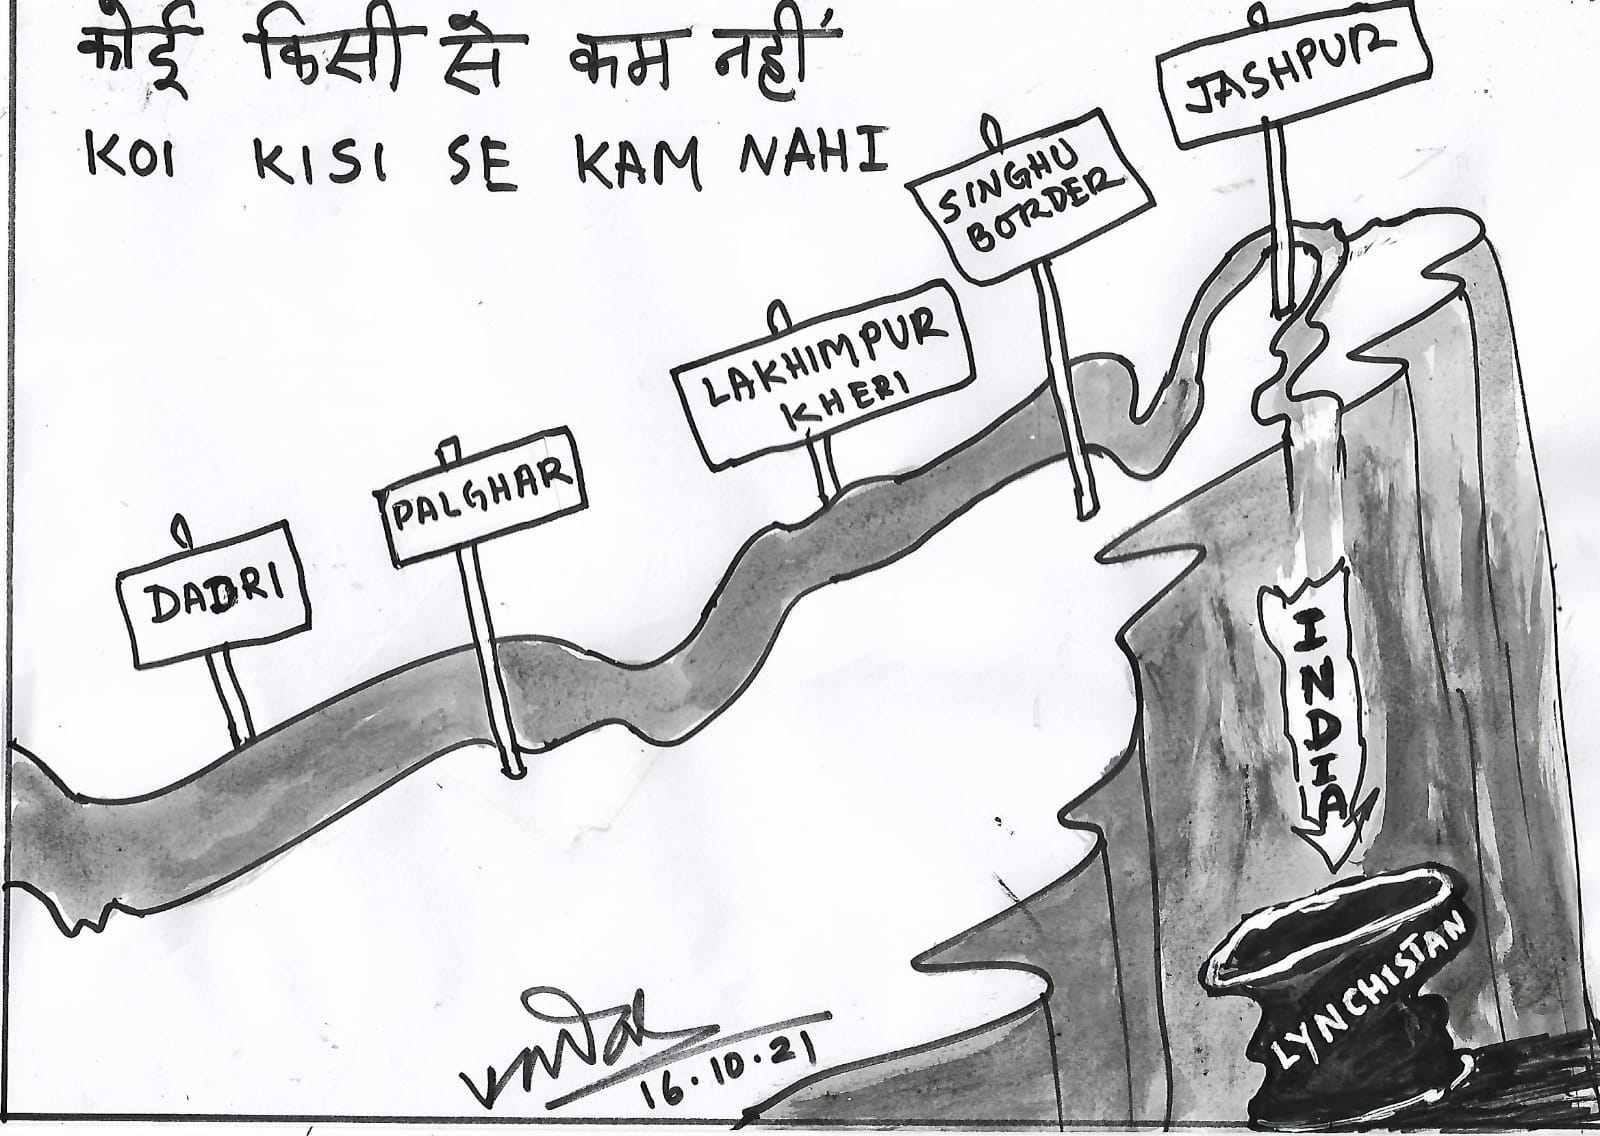 कोई किसी से कम नहीं
KOI KISI SE KAM NAHI
JASHPUR
SINGHU
BORDER
LAKHIMPUR
KHERI
PALGHAR
DADRI
INDIA
LYNCHISTAN
16.10.21